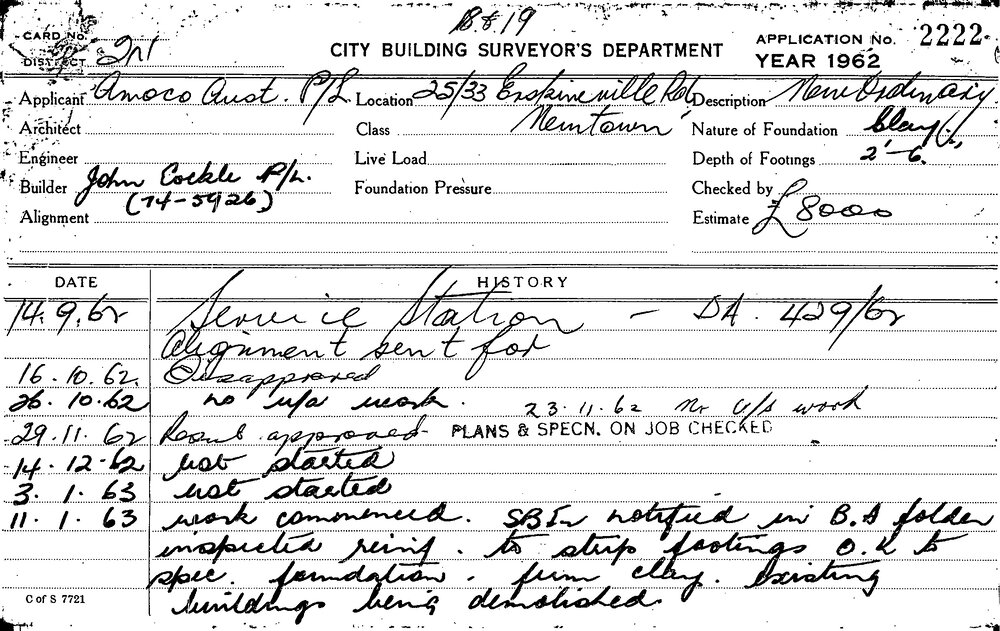 18 & 19
CARD No.
DISTRICT 2N
CITY BUILDING SURVEYOR'S DEPARTMENT
APPLICATION No. 2222
YEAR 1962
Applicant Amoco Aust. P/L Location 25/33 Erskineville Rd, Description New Ordinary
Architect Class Newtown Nature of Foundation Clay
Engineer Live Load Depth of Footings 2'-6"
Builder John Cockle P/L. Foundation Pressure Checked by
(74-5926)
Alignment Estimate £8000
DATE HISTORY
14.9.62 Service Station - DA. 429/62
Alignment sent for
16.10.62. Disapproved
26.10.62 no u/a work. 23.11.62 No U/a work
29.11.62 Resub. approved PLANS & SPECN. ON JOB CHECKED
14.12-62 not started
3.1.63 not started
11.1.63 work commenced. SBIn notified in B.A folder
inspected reinf. to strip footings O.K to
spec. foundation. firm clay. existing
buildings being demolished.
C of S 7721